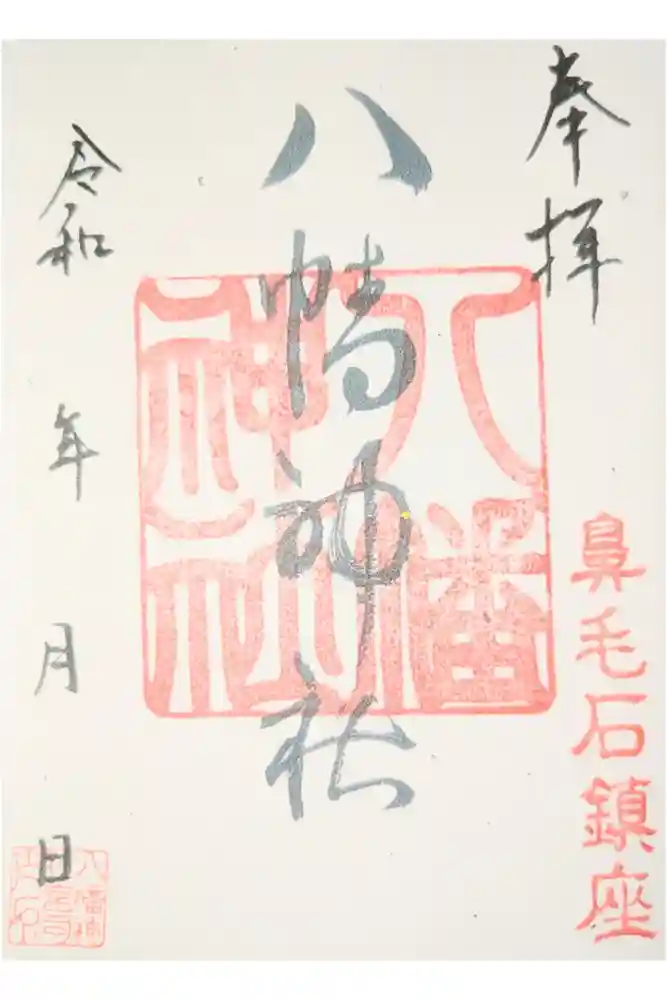 奉拝
鼻毛石鎮座
八幡神社
八幡
神社
令和 年 月 日